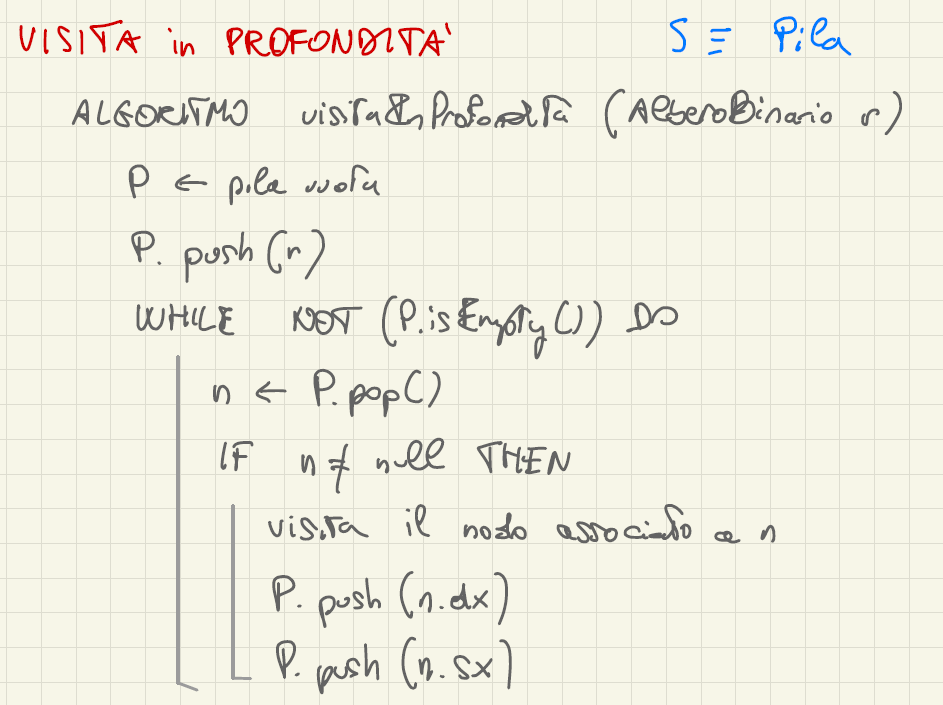 VISITA in PROFONDITA' S ≡ Pila
ALGORITMO visitaInProfondità (AlberoBinario r)
P ← pila vuota
P. push (r)
WHILE NOT (P.isEmpty()) DO
n ← P.pop()
IF n ≠ null THEN
visita il nodo associato a n
P. push (n.dx)
P. push (n.sx)